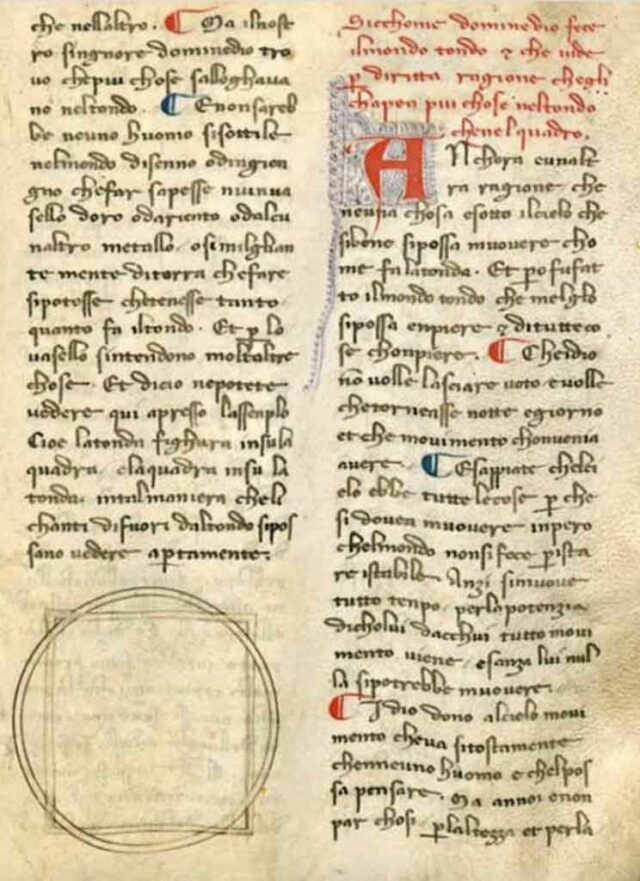 che nellaltro. Ma ilnost
ro singnore dominodio tro
vo che piu chose salloghava
no neltondo. Enonsareb
be neuno huomo sisottile
nelmondo disenno odingien
gno chefar sapesse niunva
sello doro odariento odalcu
naltro metallo. osimilglian
te mente diterra chefare
sipotesse chetenesse tanto.
quanto fa iltondo. Et p lo
vasello sintendono moltaltre
chose. Et dicio nepotete
vedere qui apresso lassenplo
Cioe latonda fighura insula
quadra. elaquadra insu la
tonda. intalmaniera chel
chanti difuori daltondo sipos
sano vedere aptamente.
Sicchome dominedio fece
ilmondo tondo ⁊ che vide
p diritta ragione chegli
chapea piu chose neltondo
chenelquadro.
ANchora eunalt
ra ragione che
neuna chosa esotto ilcielo che
sibene sipossa muovere cho
me fa latonda. Et po fu fat
to ilmondo tondo che melglo
sipossa enpiere ⁊ ditutteco
se chonpiere. Cheidio
nō volle lasciare voto evolle
chetornasse notte egiorno
et che movimento chonvenia
avere. Esappiate chelci
elo ebbe tutte lecose p che
si dovea muovere inpero
chelmondo nonsi fece pista
re istabile. Anzi simuove
tutto tenpo. perlapotenzia
dicholui dacchui tutto movi
mento viene. esanza lui nul
la sipotrebbe muovere.
Idio dono alcielo movi
mento cheva sitostamente
chenneuno huomo e chelpos
sa pensare. Ma annoi enon
par chosi. plaltezza et perla